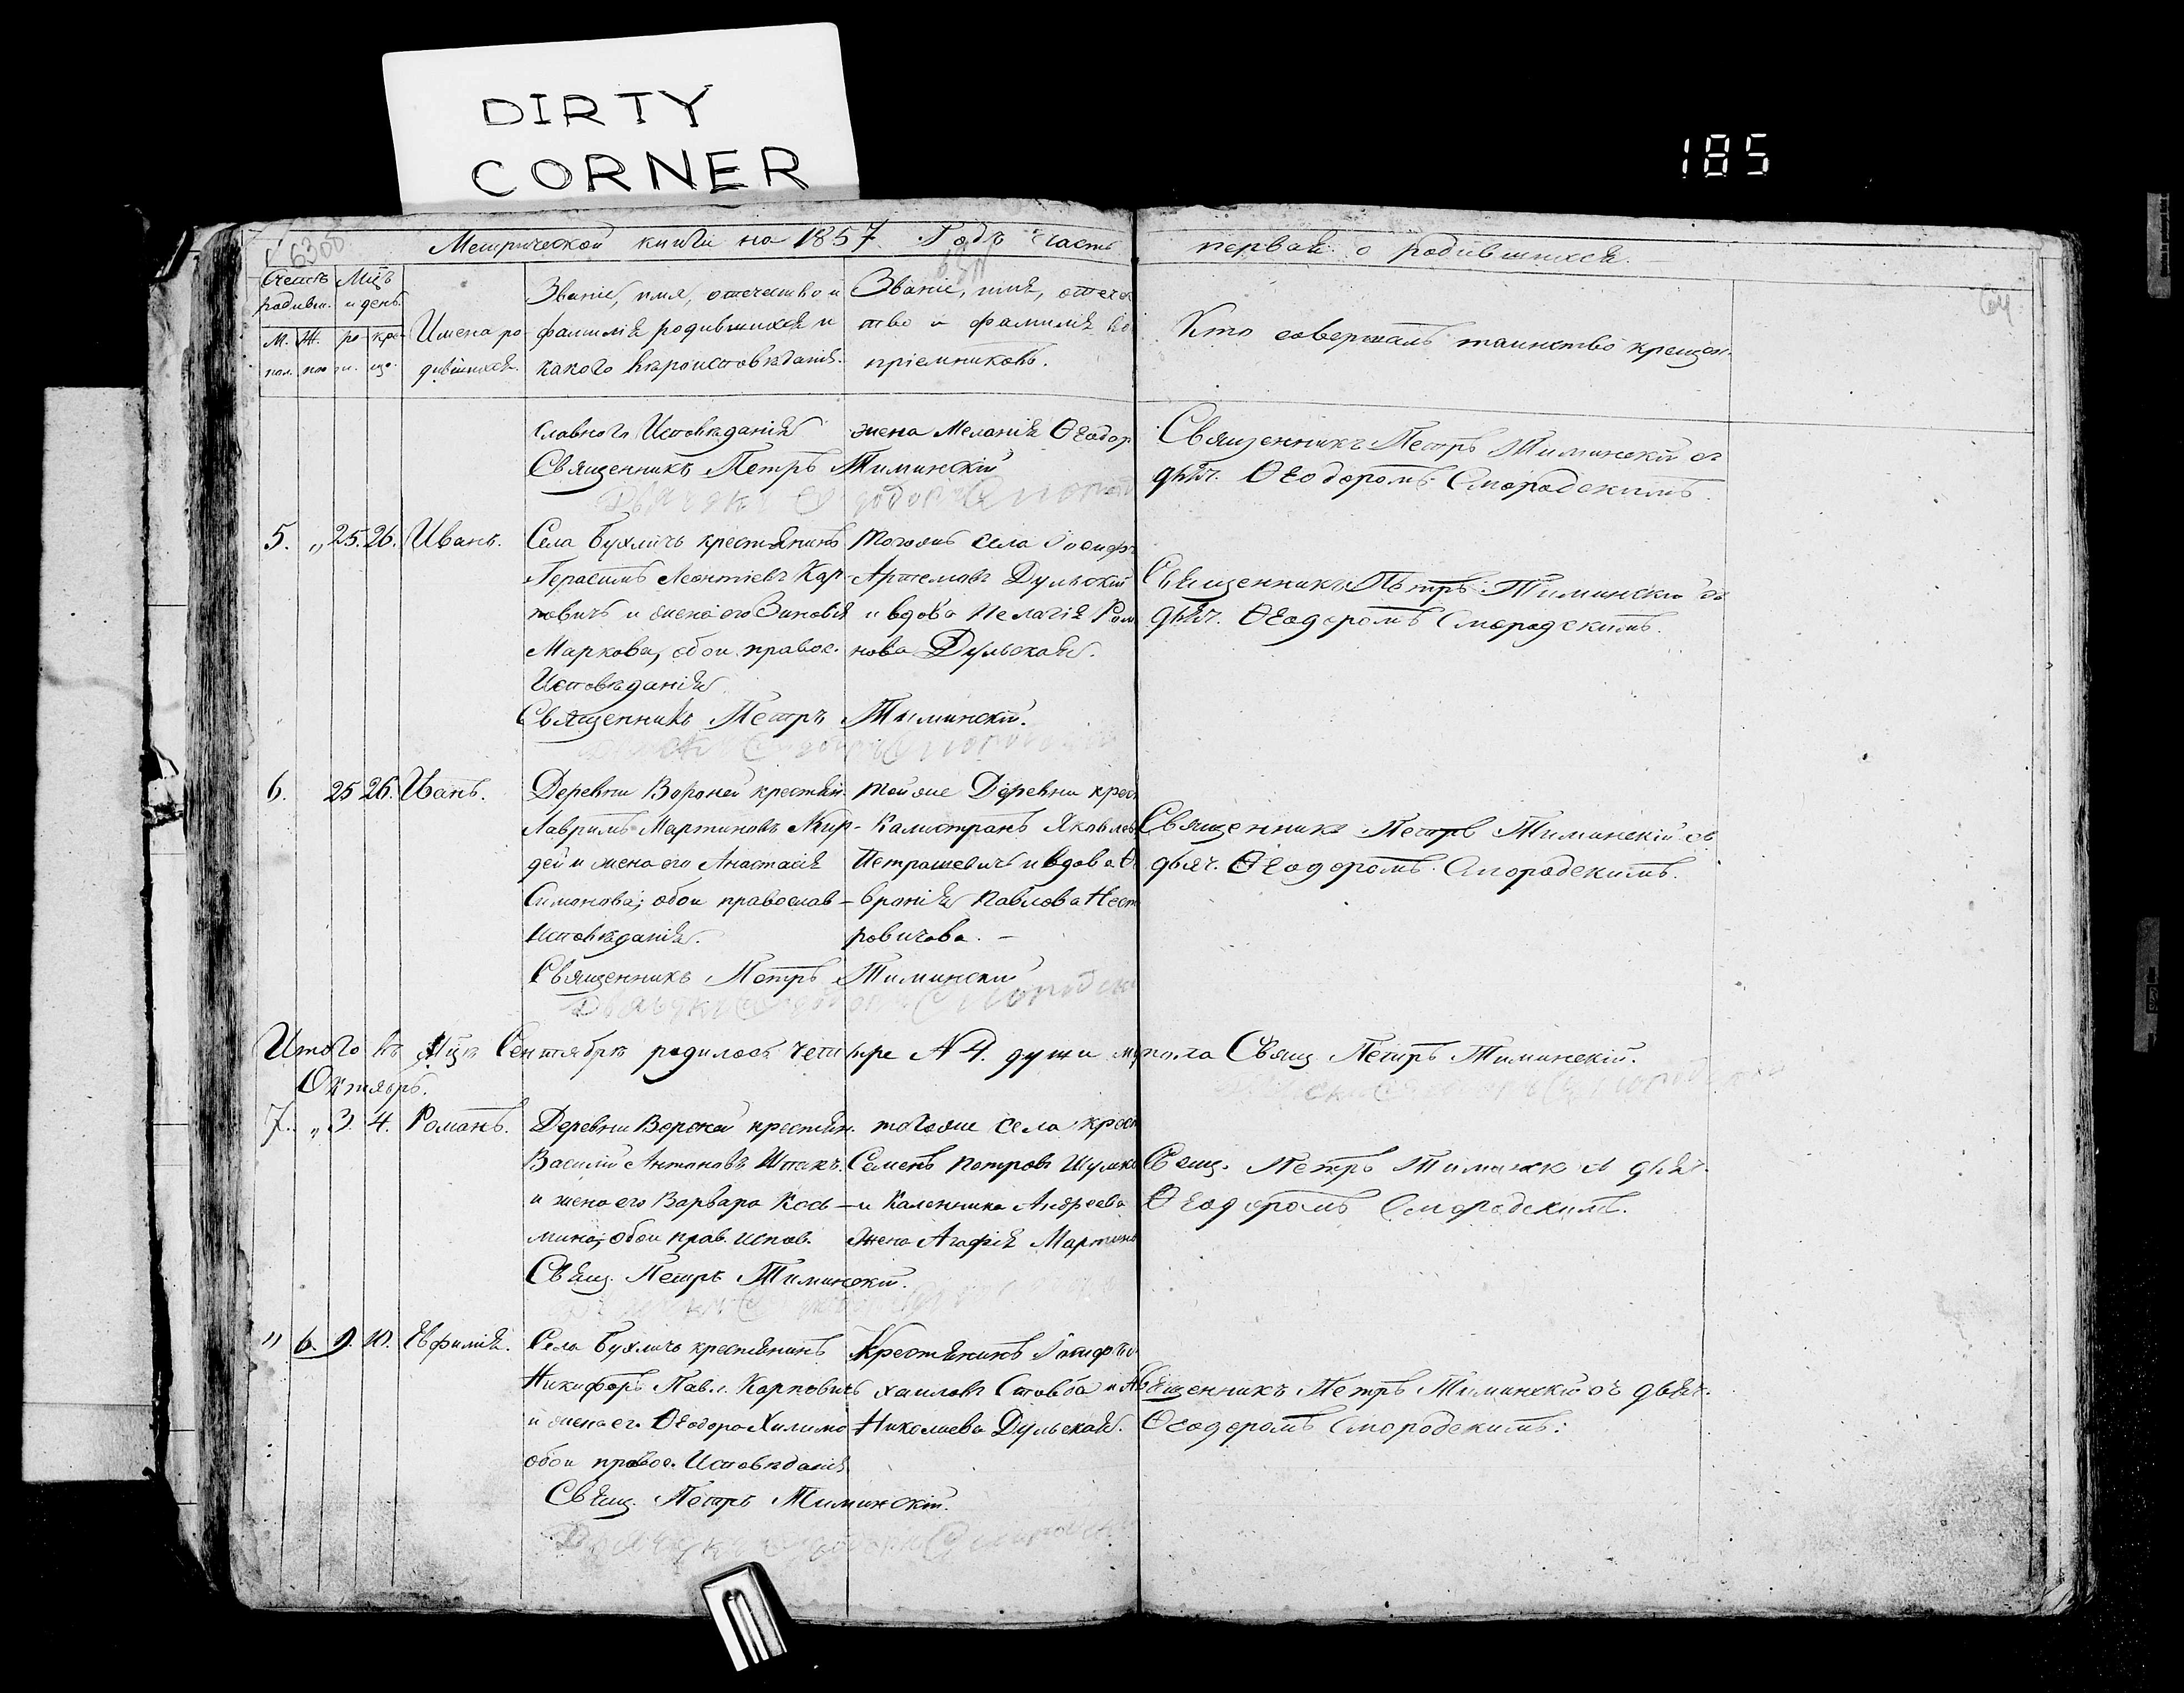 DIRTY
CORNER
185
6308
Метрической книги на 1857 Годъ часть первая о родившихся.
64
Счетъ родивш.
Мцъ и день
М. пол.
Ж. по
ро
кре- ще.
Имена ро-
дившихся.
Званіе, имя, отечество и
фамилія родившихся и
какого вѣроисповѣданія.
Званіе, имя, отече
тво и фамилія во
пріемниковъ.
Кто совершалъ таинство крещен.
славного Исповѣданія
Священникъ Петръ Тиминскій
жена Меланія Ѳеодор
Священникъ Петръ Тиминскій съ
дьяч. Ѳеодоромъ Смородскимъ.
5. „ 25. 26. Иванъ.
Села Бухличъ крестянинъ
Герасимъ Леонтіевъ Кар-
повичъ и жена его Зиновія
Маркова, обои правос.
Исповѣданія
Священникъ Петръ Тиминскій.
тогоже села Іосифъ
Артемовъ Дульскій
и вдова Пелагія Ром
нова Дульская.
Священникъ Петръ Тиминскій съ
дьяч. Ѳеодоромъ Смородскимъ.
6. 25 26. Иванъ.
Деревни Вороней крестян.
Лавринъ Мартиновъ
дей и жена его Анастасія
Симонова; обои православ-
Исповѣданія.
Священникъ Петръ Тиминскій
тойже Деревни крест
Калистратъ Яковлев
Петрашевичъ и вдова
вронія Павлова Нест
ровичова. —
Священникъ Петръ Тиминскій съ
дьяч. Ѳеодоромъ Смородскимъ.
Итого въ Мцѣ Сентябрѣ родилось четыре № 4. души му пола Свящ. Петръ Тиминскій.
Октябрь.
7. „ 3. 4. Романъ.
Деревни Вороней крестян.
Василій Антоновъ Шпакъ.
и жена его Варвара Кось-
мина; обои прав. испов.
Свящ. Петръ Тиминскій.
тогоже села крест
Семенъ Петровъ
и Каленника Андреева
жена Агафія Мартинов
Свящ. Петръ Тиминск дьяч.
Ѳеодоромъ Смородскимъ.
„ 6. 9. 10. Евфимія.
Села Бухличъ крестянинъ
Никифоръ Павл. Карповичъ
и жена ег. Ѳеодора Хилимо
обои правос. Исповѣданія
Свящ. Петръ Тиминскій.
Крестянинъ Іосифъ
хаиловъ Стовба и
Николаева Дульская.
Священникъ Петръ Тиминскій съ дьяч.
Ѳеодоромъ Смородскимъ: